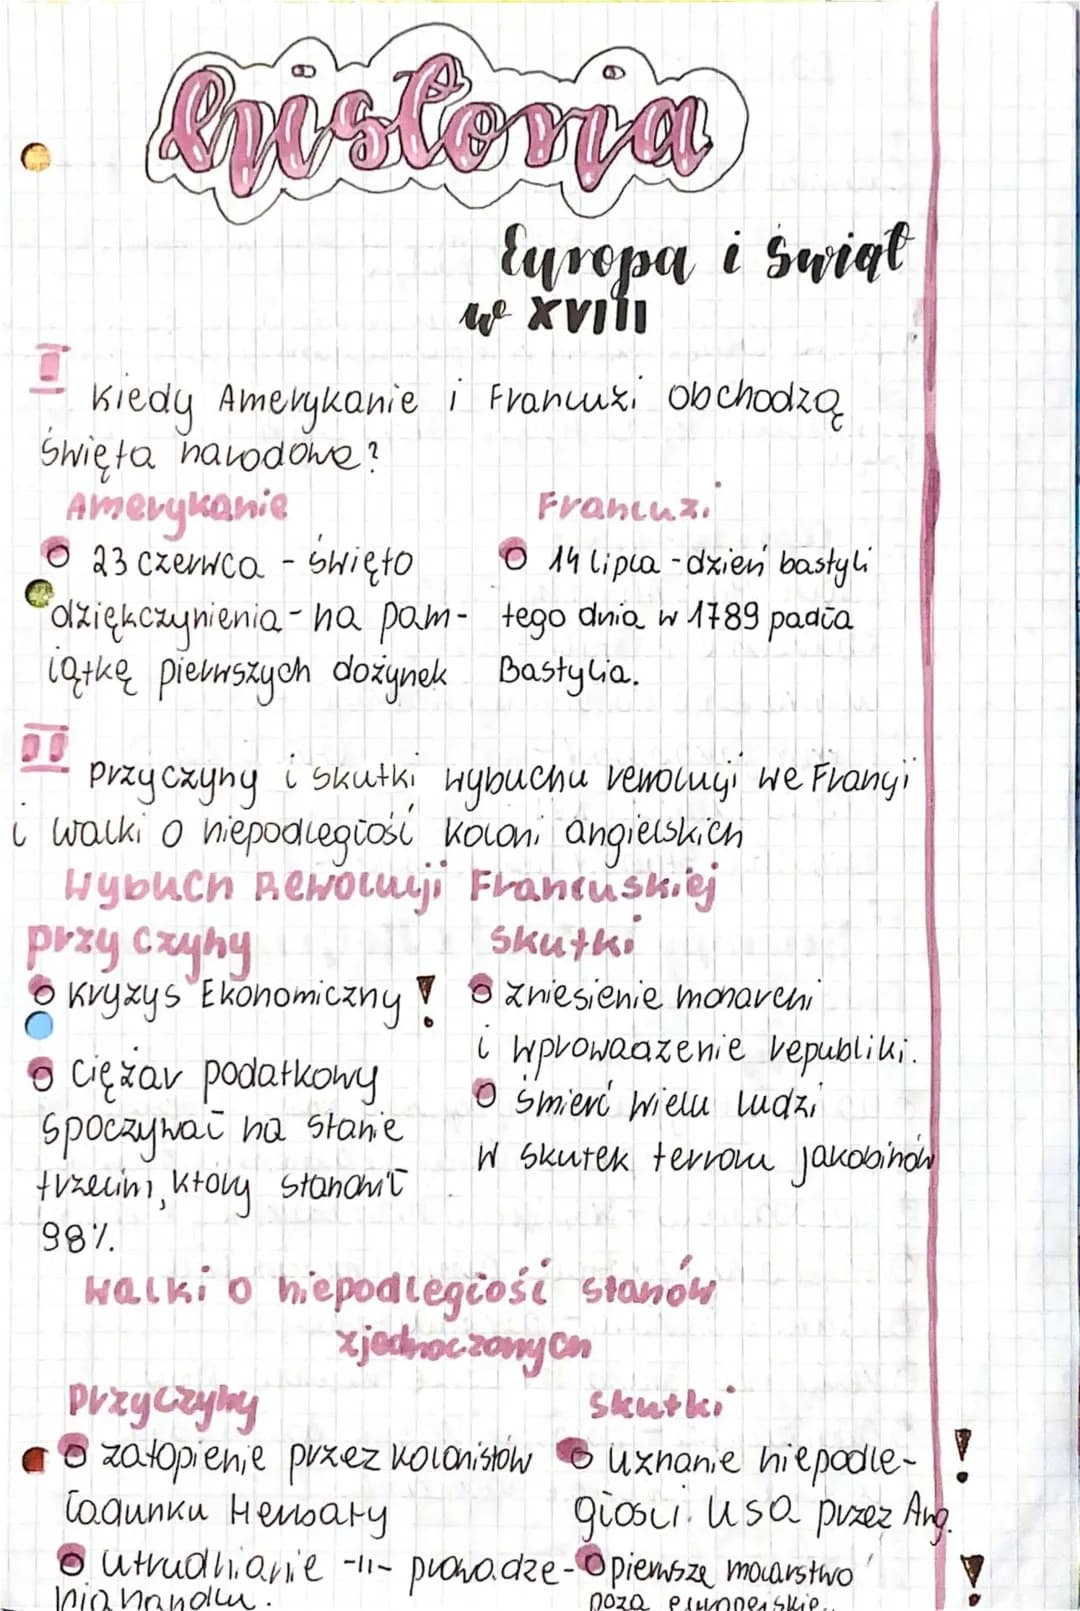 historia
Europa i świat
w XVIII
I
Kiedy Amerykanie i Francuzi obchodzą
święta narodowe?
Amerykanie
23 czerwca - święto
dziękczynienia - na pam-
iątkę pierwszych dożynek
Francuzi
14 lipca - dzień bastyli
tego dnia w 1789 padła
Bastylia.
II
przyczyny i skutki wybuchu rewolucji we Francji
i walki o niepodległość koloni angielskich
Wybuch Rewolucji Francuskiej
przyczyny
Kryzys Ekonomiczny !
Ciężar podatkowy
spoczywał na stanie
trzecim, który stanowił
98%.
skutki
zniesienie monarchi
i wprowadzenie republiki.
śmierć wielu ludzi
w skutek terroru jakobinów
walki o niepodległość stanów
zjednoczonych
Przyczyny
zatopienie przez kolonistów
ładunku Herbaty
utrudnianie -11- prowadze-
nia handlu.
skutki
uznanie niepodle- !
głości USA przez Ang.
pierwsze mocarstwo !
poza europejskie.